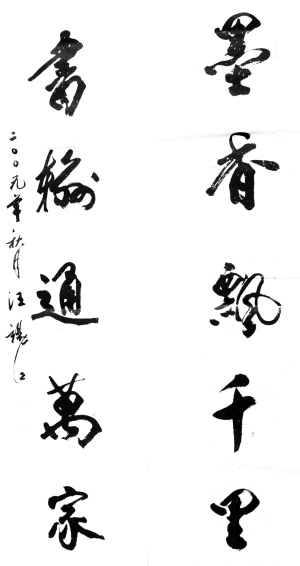 墨香飄千里
書翰通萬家
二〇〇九年秋月汪锡江